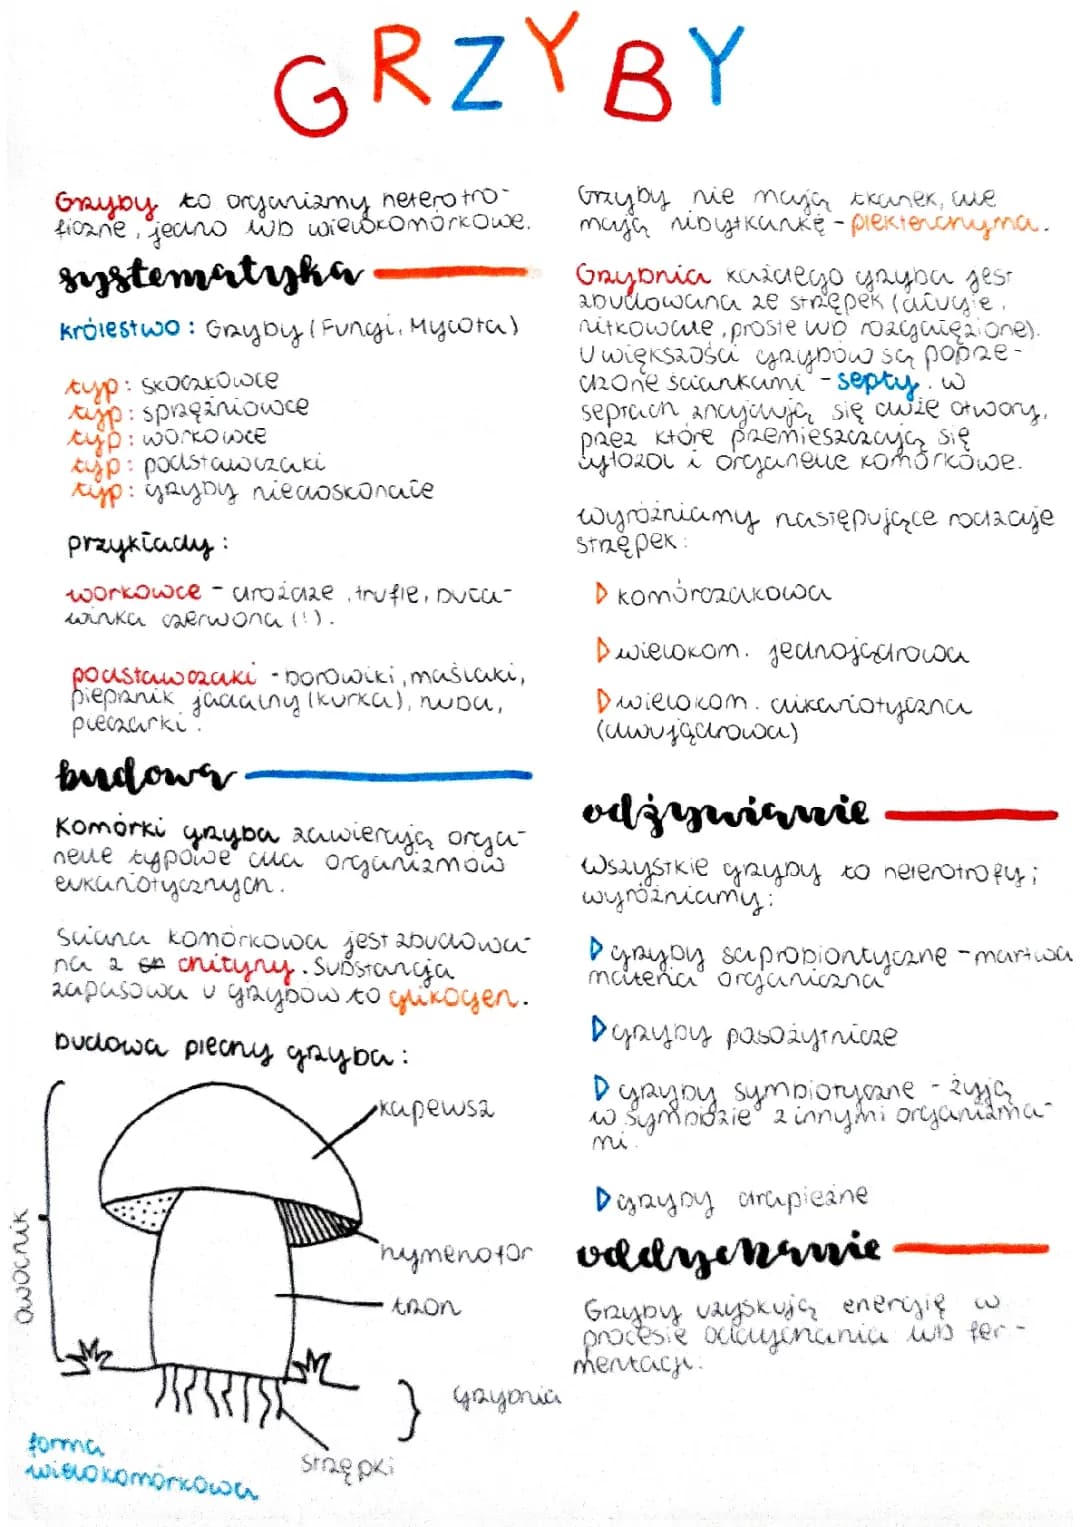 GRZYBY
Grzyby to organizmy heterotro-
ficzne, jedno lub wielokomórkowe.
systematyka
Królestwo: Grzyby (Fungi, Mycota)
typ: skoczkowce
typ: sprzężniowce
typ: workowce
typ: podstawczaki
typ: grzyby niedoskonałe
przykłady:
workowce - drożdże, trufle, buła-
winka czerwona (!).
podstawczaki - borowiki, maślaki,
pieprznik jadalny (kurka), huba,
pieczarki.
budowa
Komórki grzyba zawierają orga-
nelle typowe dla organizmów
eukariotycznych.
Ściana komórkowa jest zbudowa-
na z chityny. Substancja
zapasowa u grzybów to glikogen.
Budowa plechy grzyba:
kapelusz
hymenofor
trzon
owocnik
grzybnia
strzępki
forma
wielokomórkowa
Grzyby nie mają tkanek, ale
mają nibytkankę - plektenchyma.
Grzybnia każdego grzyba jest
zbudowana ze strzępek (długie,
nitkowate, proste lub rozgałęzione).
U większości grzybów są poprze-
dzone ściankami - septy. W
septach znajdują się duże otwory,
przez które przemieszczają się
cytozol i organelle komórkowe.
wyróżniamy następujące rodzaje
strzępek:
komórczakowa
wielokom. jednojądrowa
wielokom. dikariotyczna
(dwujądrowa)
odżywianie
Wszystkie grzyby to heterotrofy;
wyróżniamy:
grzyby saprobiontyczne - martwa
materia organiczna
grzyby pasożytnicze
grzyby symbiotyczne - żyją
w symbiozie z innymi organizma-
mi.
grzyby drapieżne
oddychanie
Grzyby uzyskują energię w
procesie oddychania lub fer-
mentacji.